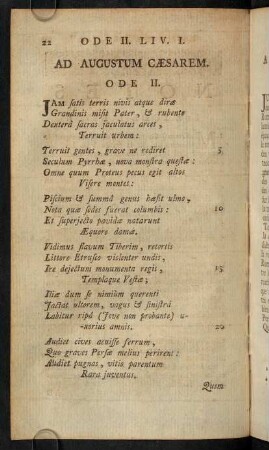 22 ODE II. LIV. I.
AD AUGUSTUM CÆSAREM.
ODE II.
JAM satis terris nivis atque diræ
Grandinis misit Pater, & rubente
Dexterâ sacras jaculatus arces,
Terruit urbem:
Terruit gentes, grave ne rediret 5
Seculum Pyrrhæ, nova monstra questæ:
Omne quum Proteus pecus egit altos
Visere montes:
Piscium & summâ genus hæsit ulmo,
Nota quæ sedes fuerat columbis: 10
Et superjecto pavidæ natarunt
Æquore damæ.
Vidimus flavum Tiberim, retortis
Littore Etrusco violenter undis,
Ire dejectum monumenta regis, 15
Templaque Vestæ;
Iliæ dum se nimiùm querenti
Jactat ultorem, vagus & sinistrâ
Labitur ripâ (Jove non probante) u-
xorius amnis. 20
Audiet cives acuisse ferrum,
Quo graves Persæ melius perirent:
Audiet pugnas, vitio parentum
Rara juventus.
Quem